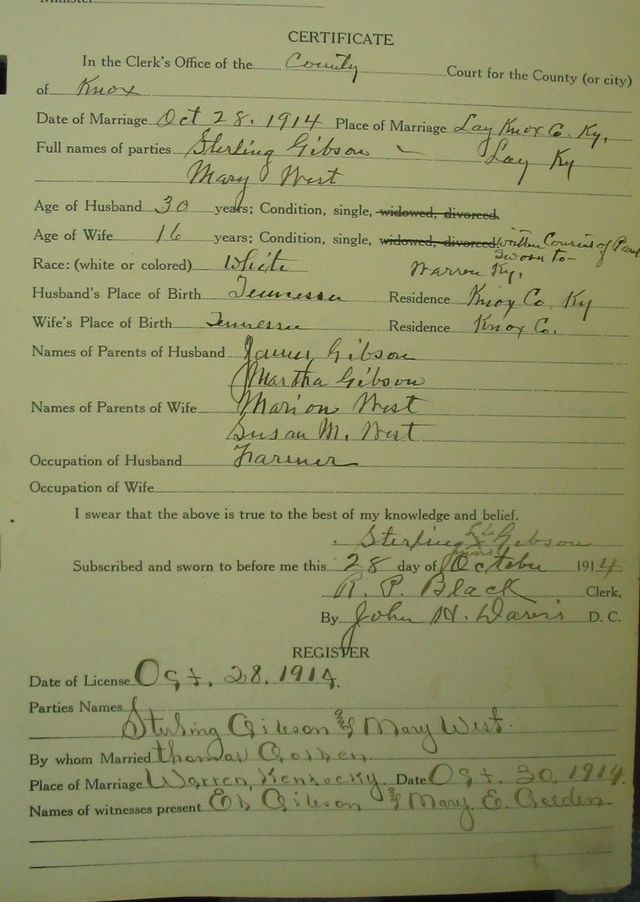 CERTIFICATE
In the Clerk's Office of the County Court for the County (or city)
of Knox
Date of Marriage Oct 28, 1914 Place of Marriage Lay Knox Co. Ky,
Full names of parties Sterling Gibson - Lay Ky
Mary West
Age of Husband 30 years; Condition, single, widowed, divorced.
Age of Wife 16 years; Condition, single, widowed, divorced written of
Sworn to-
Race: (white or colored) White Warren Ky,
Husband's Place of Birth Tennessee Residence Knox Co Ky
Wife's Place of Birth Tennessee Residence Knox Co.
Names of Parents of Husband James Gibson
Martha Gibson
Names of Parents of Wife Marion West
Susan M. West
Occupation of Husband Farmer
Occupation of Wife
I swear that the above is true to the best of my knowledge and belief.
Sterling X Gibson
Subscribed and sworn to before me this 28 day of October 1914
R. P. Black Clerk,
By John H. Davis D. C.
REGISTER
Date of License Oct. 28. 1914.
Parties Names
Sterling Gibson & Mary West.
By whom Married thomas
Place of Marriage Warren, Kentucky. Date Oct. 30, 1914.
Names of witnesses present Gibson & Mary E.